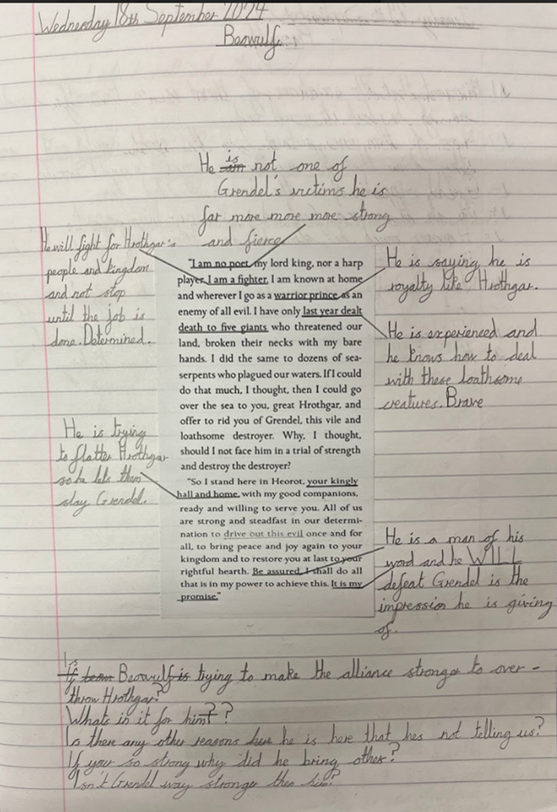 Wednesday 18th September 2024
Beowulf
He is not one of
Grendel's victims he is
far more more more strong
and fierce
He will fight for Hrothgar's
people and kingdom
and not stop
until the job is
done. Determined.
He is trying
to flatter Hrothgar
so he lets them
slay Grendel.
"I am no poet, my lord king, nor a harp
player. I am a fighter. I am known at home
and wherever I go as a warrior prince as an
enemy of all evil. I have only last year dealt
death to five giants who threatened our
land, broken their necks with my bare
hands. I did the same to dozens of sea-
serpents who plagued our waters. If I could
do that much, I thought, then I could go
over the sea to you, great Hrothgar, and
offer to rid you of Grendel, this vile and
loathsome destroyer. Why, I thought,
should I not face him in a trial of strength
and destroy the destroyer?
"So I stand here in Heorot, your kingly
hall and home, with my good companions,
ready and willing to serve you. All of us
are strong and steadfast in our determi-
nation to drive out this evil once and for
all, to bring peace and joy again to your
kingdom and to restore you at last to your
rightful hearth. Be assured, I shall do all
that is in my power to achieve this. It is my
promise."
He is saying he is
royalty like Hrothgar.
He is experienced and
he knows how to deal
with these loathsome
creatures. Brave
He is a man of his
word and he WILL
defeat Grendel is the
impression he is giving
of.
Is Beowulf trying to make the alliance stronger to over-
throw Hrothgar?
Whats in it for him??
Is there any other reasons he is here that hes not telling us?
If your so strong why did he bring other?
Isn't Grendel way stronger then him?